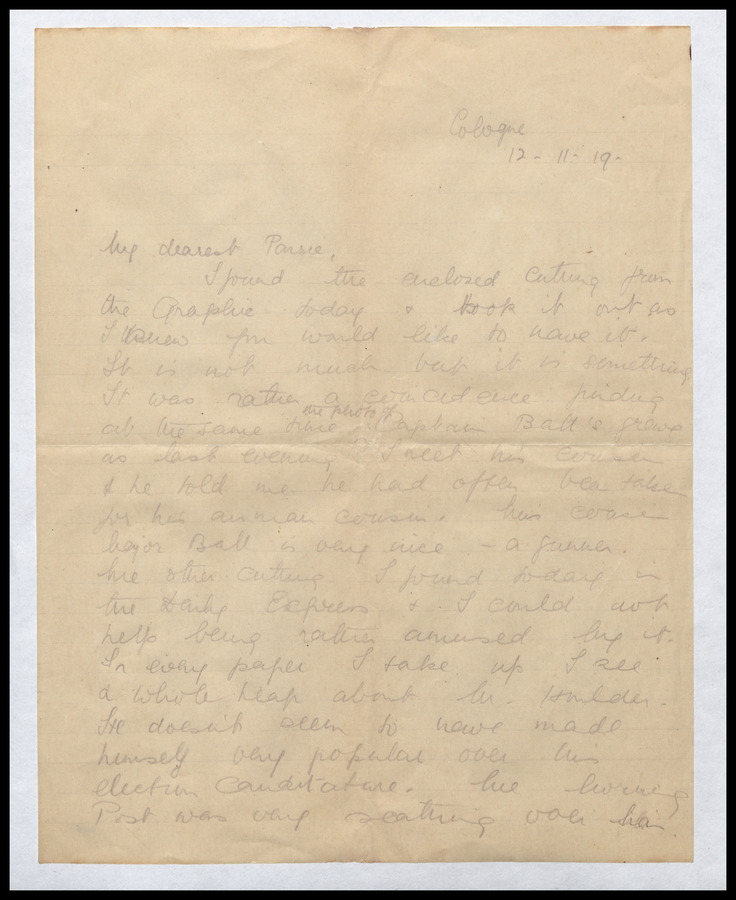 Cologne
12-11-19-
My dearest
I found the enclosed cutting from
the Graphic today & took it out as
I knew you would like to have it.
It is not much but it is something
It was rather a coincidence finding
at the same time the photo of Captain Ball's grave
as last evening I met his cousin
& he told me he had often been taken
for his airman cousin. This cousin
Major Ball is very nice - a gunner.
The other cutting I found today in
the Daily Express & I could not
help being rather amused by it.
In every paper I take up I see
a whole heap about Mr.
He doesn't seem to have made
himself very popular over his
election canditature. The Morning
Post was very scathing over him.